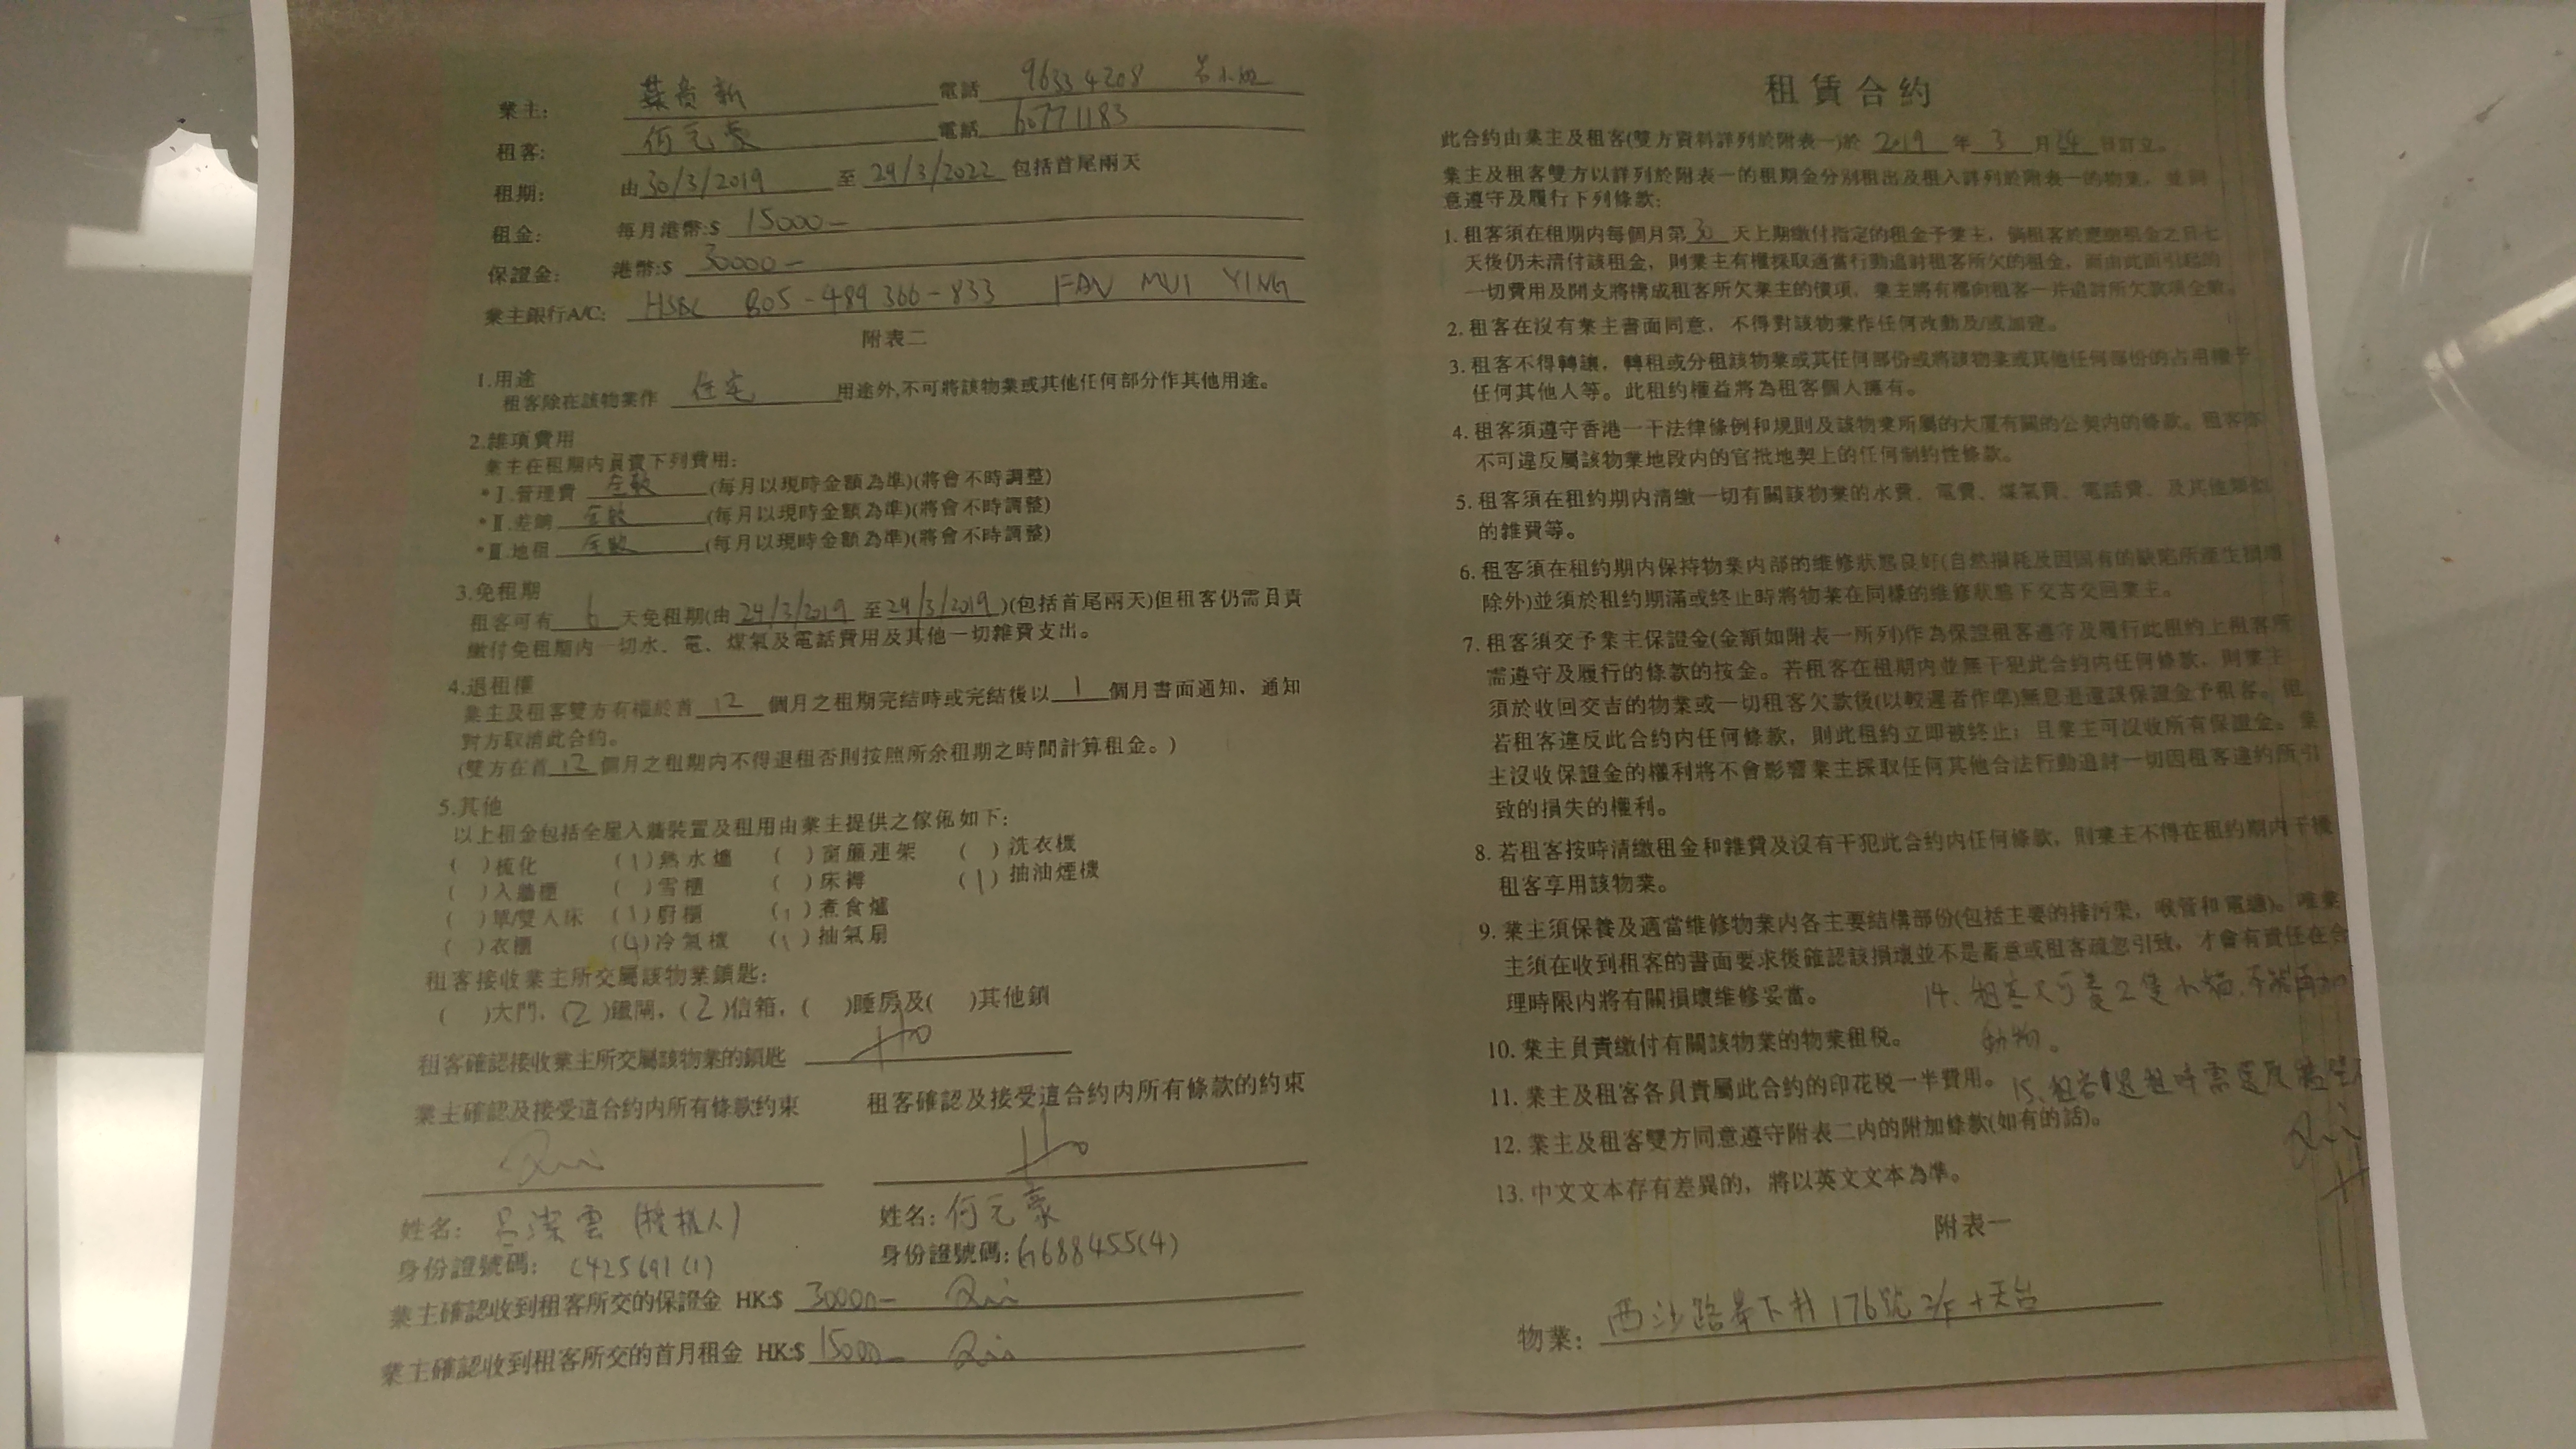 租賃合約
此合約由業主及租客(雙方資料詳列於附表一)於 2019 年 3 月 24 日訂立。
業主及租客雙方以詳列於附表一的租期金分別租出及租入詳列於附表一的物業，並同
意遵守及履行下列條款:
1. 租客須在租期內每個月第 30 天上期繳付指定的租金予業主，倘租客於應繳租金之日七
天後仍未清付該租金，則業主有權採取適當行動追討租客所欠的租金，而由此而引起的
一切費用及開支將構成租客所欠業主的債項，業主將有權向租客一併追討所欠款項全數。
2. 租客在沒有業主書面同意，不得對該物業作任何改動及/或加建。
3. 租客不得轉讓，轉租或分租該物業或其任何部份或將該物業或其他任何部份的占用權予
任何其他人等。此租約權益將為租客個人擁有。
4. 租客須遵守香港一干法律條例和規則及該物業所屬的大廈有關的公契內的條款。租客亦
不可違反屬該物業地段内的官批地契上的任何制約性條款。
5. 租客須在租約期內清繳一切有關該物業的水費、電費、煤氣費、電話費、及其他類似
的雜費等。
6. 租客須在租約期内保持物業内部的維修狀態良好(自然損耗及因固有的缺陷所產生損壞
除外)並須於租約期滿或終止時將物業在同樣的維修狀態下交吉交回業主。
7. 租客須交予業主保證金(金額如附表一所列)作為保證租客遵守及履行此租約上租客所
需遵守及履行的條款的按金。若租客在租期內並無干犯此合約内任何條款，則業主
須於收回交吉的物業或一切租客欠款後(以較遲者作準)無息退還該保證金予租客。但
若租客違反此合約内任何條款，則此租約立即被終止；且業主可沒收所有保證金。業
主沒收保證金的權利將不會影響業主採取任何其他合法行動追討一切因租客違約所引
致的損失的權利。
8. 若租客按時清繳租金和雜費及沒有干犯此合約内任何條款，則業主不得在租約期内干擾
租客享用該物業。
9. 業主須保養及適當維修物業内各主要結構部份(包括主要的排污渠，喉管和電纜)。唯業
主須在收到租客的書面要求後確認該損壞並不是蓄意或租客疏忽引致，才會有責任在合
理時限内將有關損壞維修妥當。
14. 租客只可養2隻小貓,不能再加
動物。
10. 業主負責繳付有關該物業的物業租税。
11. 業主及租客各負責屬此合約的印花税一半費用。
15. 租客退租時需還
12. 業主及租客雙方同意遵守附表二内的附加條款(如有的話)。
13. 中文文本存有差異的，將以英文文本為準。
附表一
物業: 西沙路 下村 176號 2/F + 天台
業主: 葉 新 電話 96334208 呂小姐
租客: 何元豪 電話 60771183
租期: 由 30/3/2019 至 29/3/2022 包括首尾兩天
租金: 每月港幣:$ 15000-
保證金: 港幣:$ 30000-
業主銀行A/C: HSBC 805-489366-833 FAN MUI YING
附表二
1.用途
租客除在該物業作 住宅 用途外,不可將該物業或其他任何部分作其他用途。
2.雜項費用
業主在租期内負責下列費用:
*I.管理費 全數 (每月以現時金額為準)(將會不時調整)
*II.差餉 全數 (每月以現時金額為準)(將會不時調整)
*III.地租 全數 (每月以現時金額為準)(將會不時調整)
3.免租期
租客可有 6 天免租期(由 24/3/2019 至 29/3/2019 )(包括首尾兩天)但租客仍需負責
繳付免租期内一切水、電、煤氣及電話費用及其他一切雜費支出。
4.退租權
業主及租客雙方有權於首 12 個月之租期完結時或完結後以 1 個月書面通知，通知
對方取消此合約。
(雙方在首 12 個月之租期内不得退租否則按照所余租期之時間計算租金。)
5.其他
以上租金包括全屋入牆裝置及租用由業主提供之傢俬如下:
( )梳化 (1)熱水爐 ( )窗簾連架 ( )洗衣機
( )入牆櫃 ( )雪櫃 ( )床褥 (1)抽油煙機
( )單/雙人床 (1)廚櫃 (1)煮食爐
( )衣櫃 (4)冷氣機 (1)抽氣扇
租客接收業主所交屬該物業鎖匙:
( )大門，(2)鐵閘，(2)信箱，( )睡房及( )其他鎖
租客確認接收業主所交屬該物業的鎖匙 Ho
業主確認及接受這合約内所有條款約束 租客確認及接受這合約内所有條款的約束
Ho
姓名: 呂潔雲 (授權人) 姓名: 何元豪
身份證號碼: C425691(1) 身份證號碼: G688455(4)
業主確認收到租客所交的保證金 HK$ 30000-
業主確認收到租客所交的首月租金 HK$ 15000-